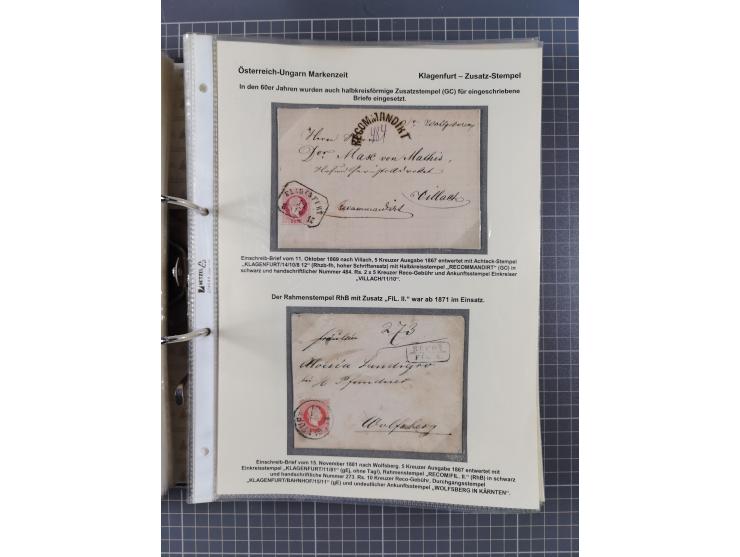 Österreich-Ungarn Markenzeit Klagenfurt – Zusatz-Stempel
In den 60er Jahren wurden auch halbkreisförmige Zusatzstempel (GC) für eingeschriebene
Briefe eingesetzt.
RECOMMANDIRT
484
Wolfsberg
Herrn
Dor. Max von Mathis,
Villach
KLAGENFURT
Recommandirt
Einschreib-Brief vom 11. Oktober 1869 nach Villach, 5 Kreuzer Ausgabe 1867 entwertet mit Achteck-Stempel
„KLAGENFURT/14/10/8 12“ (Rhzb-fh, hoher Schriftensatz) mit Halbkreisstempel „RECOMMANDIRT“ (GC) in
schwarz und handschriftlicher Nummer 484. Rs. 2 x 5 Kreuzer Reco-Gebühr und Ankunftsstempel Einkreiser
„VILLACH/11/10“.
Der Rahmenstempel RhB mit Zusatz „FIL. II.“ war ab 1871 im Einsatz.
273
Fräulein
RECOM
FIL. II.
Aloisia
Wolfsberg
Einschreib-Brief vom 15. November 1881 nach Wolfsberg. 5 Kreuzer Ausgabe 1867 entwertet mit
Einkreisstempel „KLAGENFURT/11/81“ (gE, ohne Tag!), Rahmenstempel „RECOM/FIL. II.“ (RhB) in schwarz
und handschriftliche Nummer 273. Rs. 10 Kreuzer Reco-Gebühr, Durchgangsstempel
„KLAGENFURT/BAHNHOF/15/11“ (gE) und undeutlicher Ankunftsstempel „WOLFSBERG IN KÄRNTEN“.